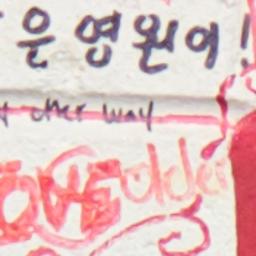 은 영원이!
other way
OVE older